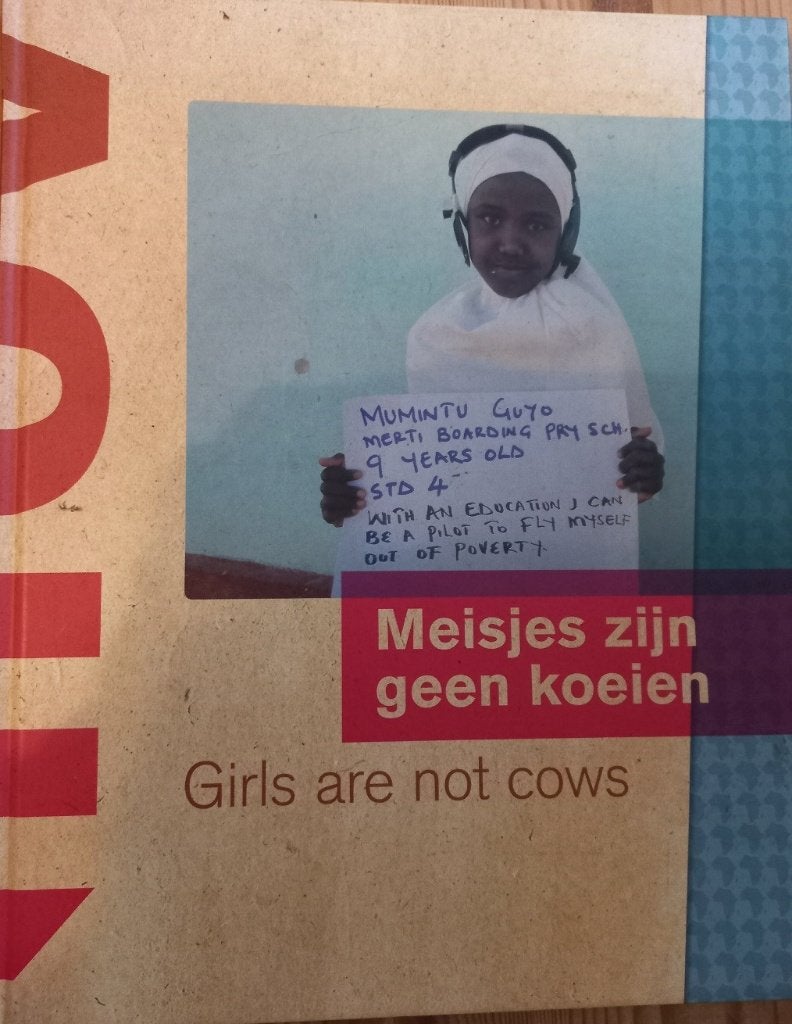 MUMINTU GUYO
MERTI BOARDING PRY SCH.
9 YEARS OLD
STD 4
WITH AN EDUCATION I CAN
BE A PILOT TO FLY MYSELF
OUT OF POVERTY.
Meisjes zijn
geen koeien
Girls are not cows